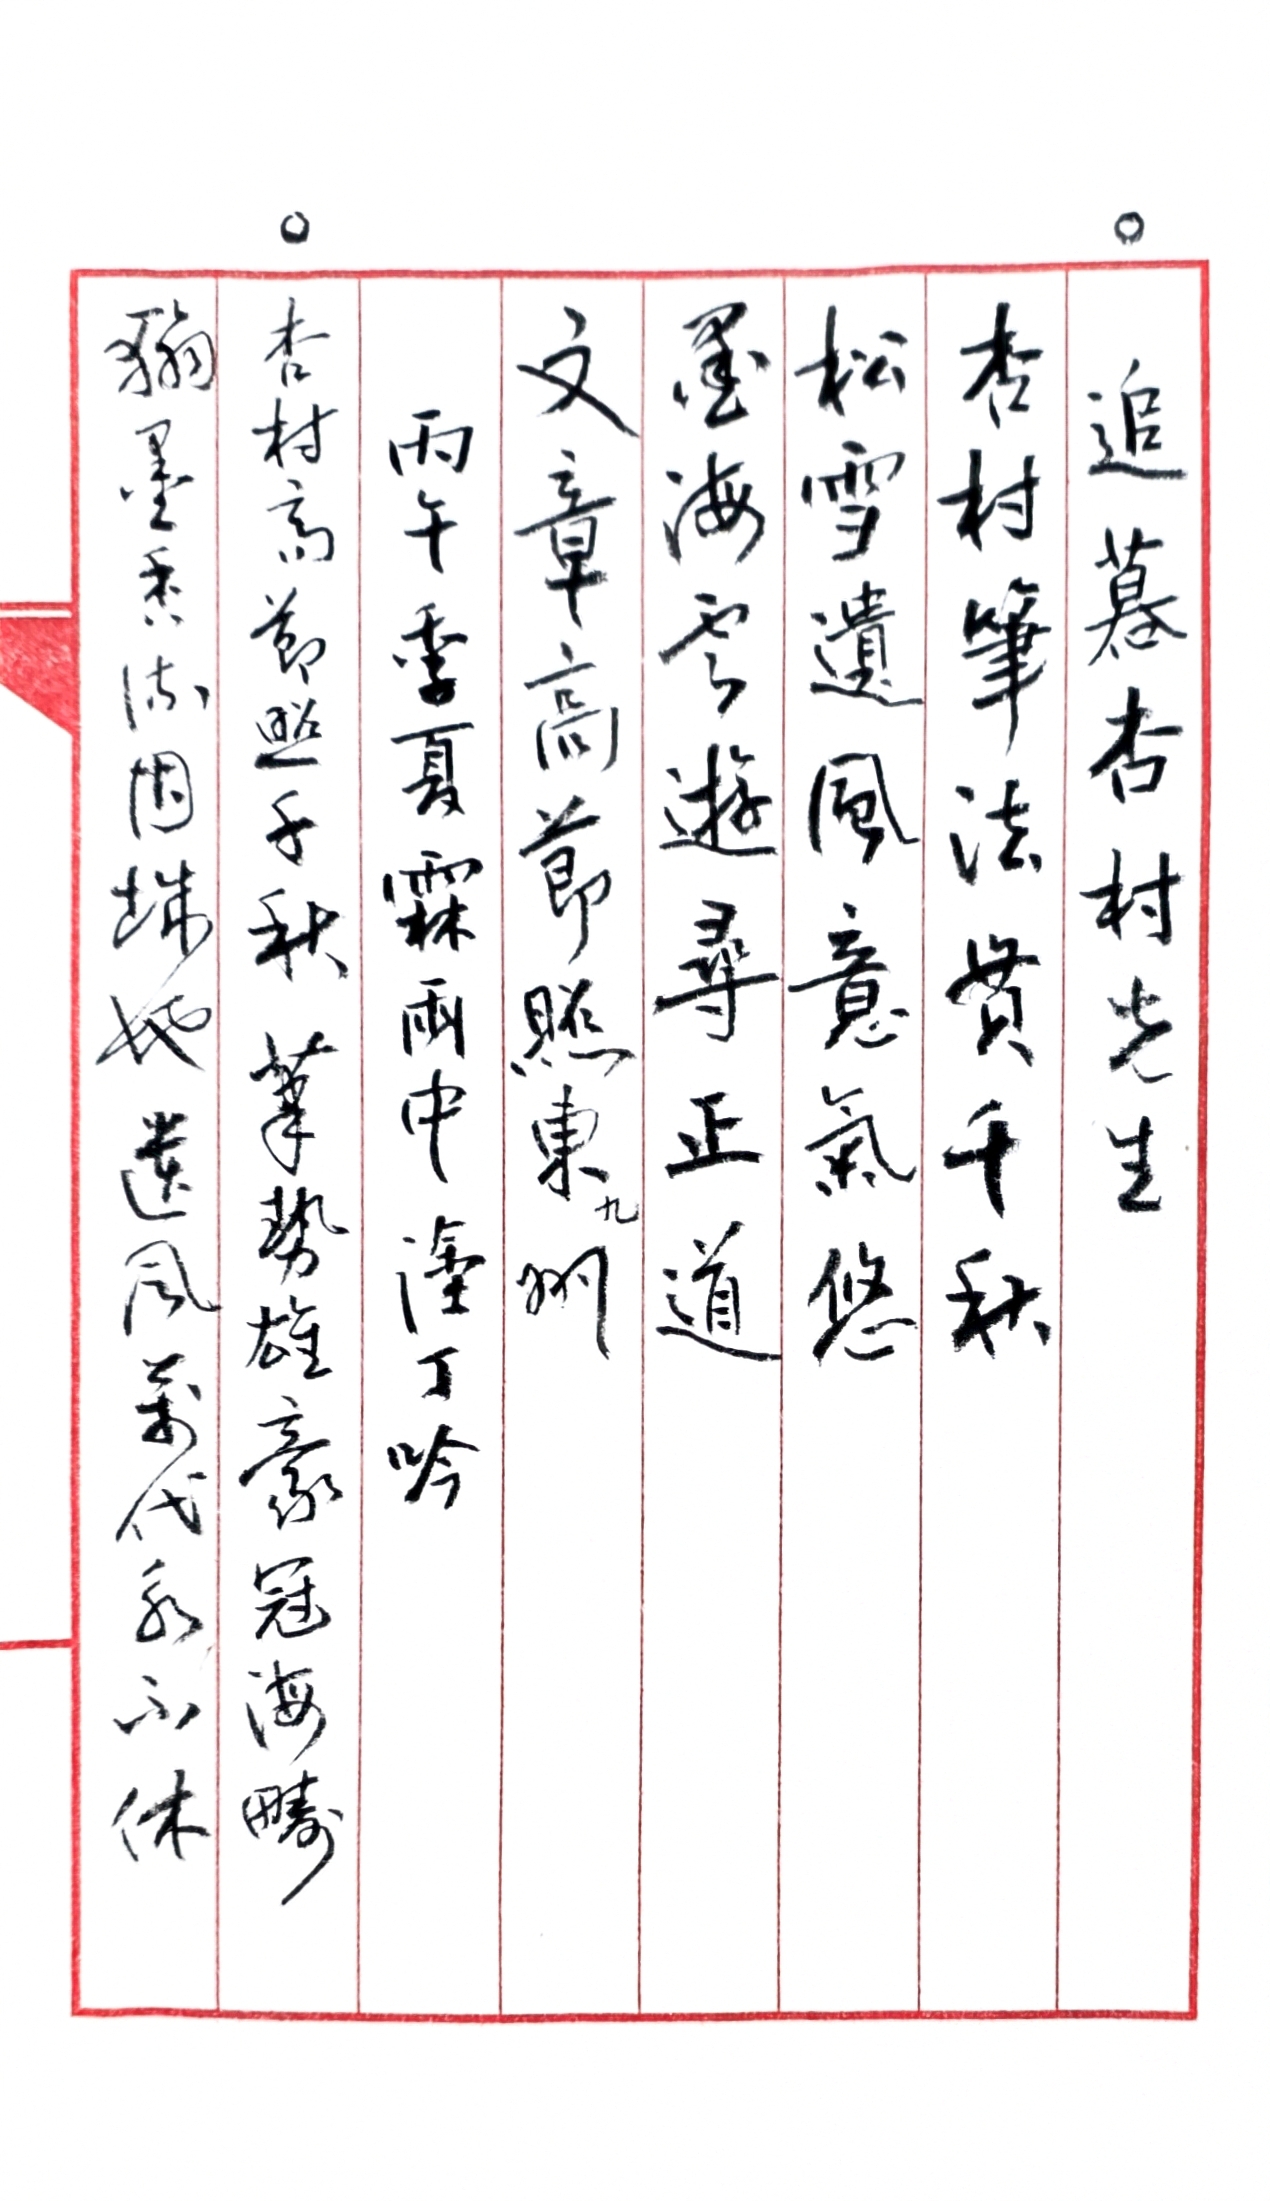 追慕杏村先生
杏村筆法貫千秋
松雪遺風意氣悠
墨海雲遊尋正道
文章高節照東九州
丙午季夏霖雨中 丁吟
杏村高節照千秋 筆勢雄豪冠海疇
翰墨香流 遺風萬代永不休